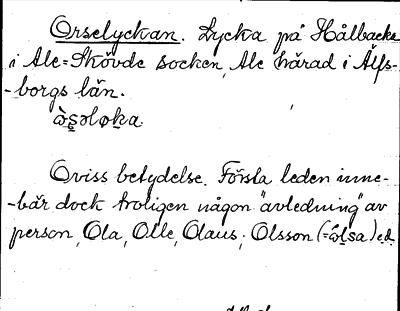 Orselyckan. Lycka på Hålbacke
i Ale=Skövde socken, Ale härad i Älfs-
-borgs län.
ò̂s̥əloka.
Oviss betydelse. Första leden inne-
-bär dock troligen någon "avledning" av
person, Ola, Olle, Olaus; Olsson (=ôlsa) e.d.